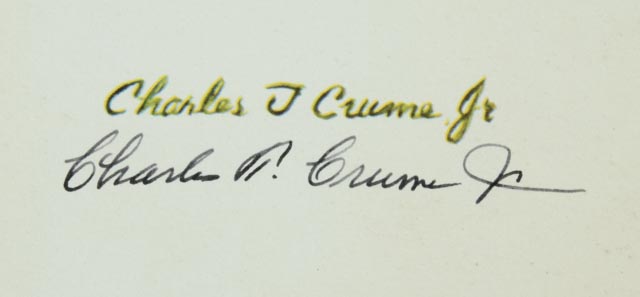 Charles T Crume Jr
Charles T. Crume Jr